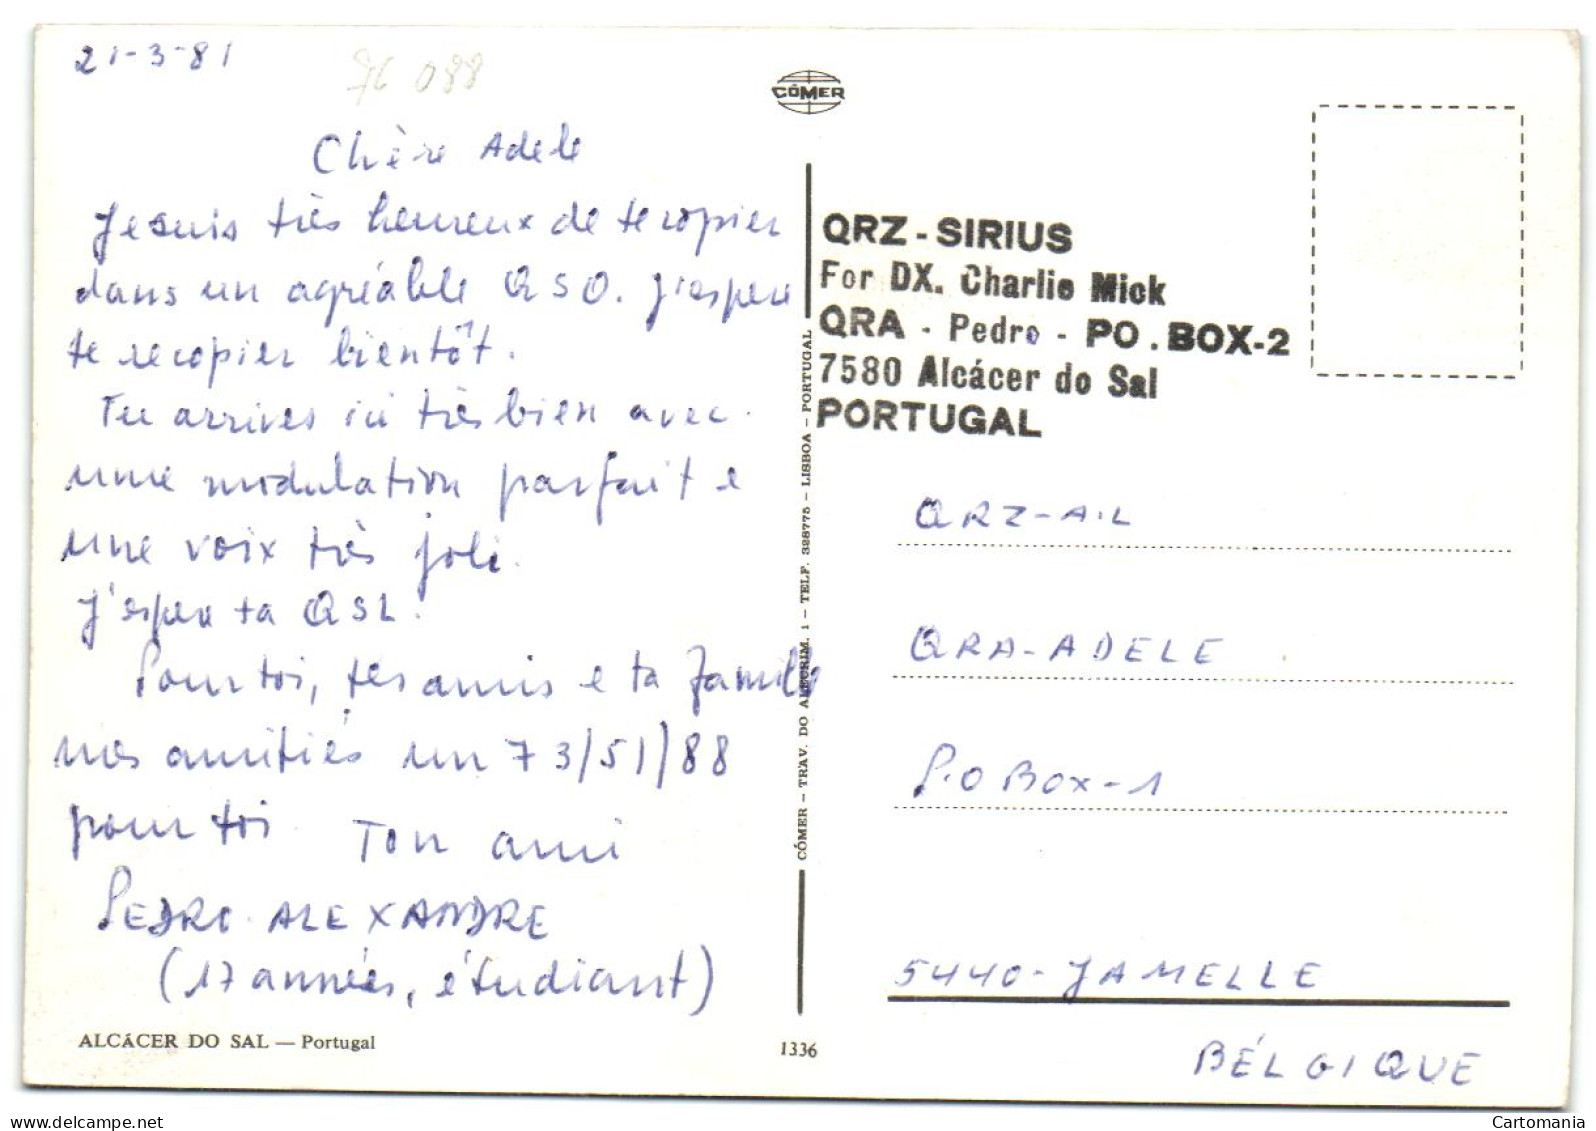 21-3-81
76 088
Chère Adele
Je suis très heureux de te copier
dans un agréable QSO. J'espere
te recopier bientôt.
Tu arrives ici très bien avec
une modulation parfait e
une voix très joli.
J'espere ta QSL.
Pour toi, tes amis e ta famille
nos amitiés un 73/51/88
pour toi Ton ami
PEDRO ALEXANDRE
(17 années, étudiant)
ALCÁCER DO SAL — Portugal
CÔMER
CÔMER — TRAV. DO ALECRIM, 1 — TELF. 328775 — LISBOA — PORTUGAL
1336
QRZ - SIRIUS
For DX. Charlie Mick
QRA - Pedro - PO . BOX-2
7580 Alcácer do Sal
PORTUGAL
QRZ-A.L
QRA-ADELE
P.O BOX-1
5440-JAMELLE
BÉLGIQUE
Cartomania